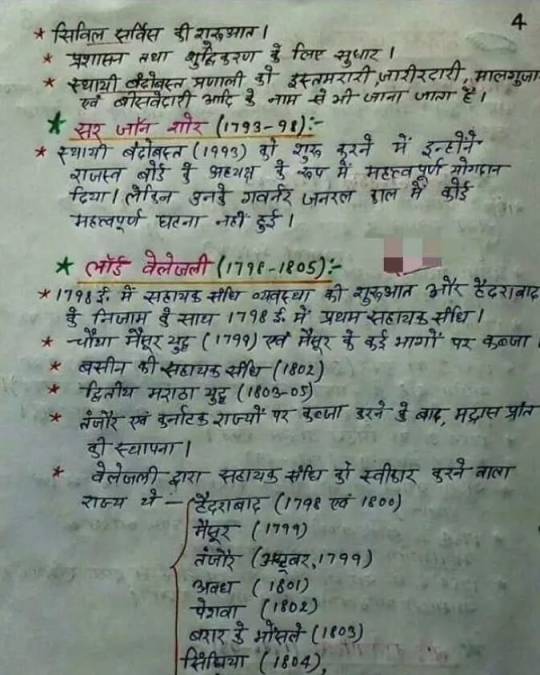 4
* सिविल सर्विस की शुरूआत।
* प्रशासन तथा शुद्धिकरण के लिए सुधार।
* स्थायी बंदोबस्त प्रणाली को इस्तमरारी, जागीरदारी, मालगुजा
एवं बीसवेदारी आदि के नाम से भी जाना जाता है।
* सर जॉन शोर (1793-98):-
* स्थायी बंदोबस्त (1993) को शुरू करने में इन्होंने
राजस्व बोर्ड के अध्यक्ष के रूप में महत्वपूर्ण योगदान
दिया। लेकिन उनके गवर्नर जनरल काल में कोई
महत्वपूर्ण घटना नहीं हुई।
* लॉर्ड वेलेजली (1798-1805):-
* 1798 ई. में सहायक संधि व्यवस्था की शुरूआत और हैदराबाद
के निजाम के साथ 1798 ई. में प्रथम सहायक संधि।
* चौथा मैसूर युद्ध (1799) एवं मैसूर के कई भागों पर कब्जा।
* बसीन की सहायक संधि (1802)
* द्वितीय मराठा युद्ध (1803-05)
* तंजौर एवं कर्नाटक राज्यों पर कब्जा करने के बाद, मद्रास प्रांत
की स्थापना।
* वेलेजली द्वारा सहायक संधि को स्वीकार करने वाला
राज्य थे - हैदराबाद (1798 एवं 1800)
मैसूर (1799)
तंजौर (अक्टूबर, 1799)
अवध (1801)
पेशवा (1802)
बरार के भोंसले (1803)
सिंधिया (1804),